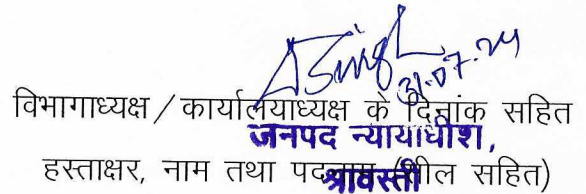 ASingh
31.07.24
विभागाध्यक्ष / कार्यालयाध्यक्ष के दिनांक सहित
जनपद न्यायाधीश,
हस्ताक्षर, नाम तथा पदनाम (सील सहित)
श्रावस्ती